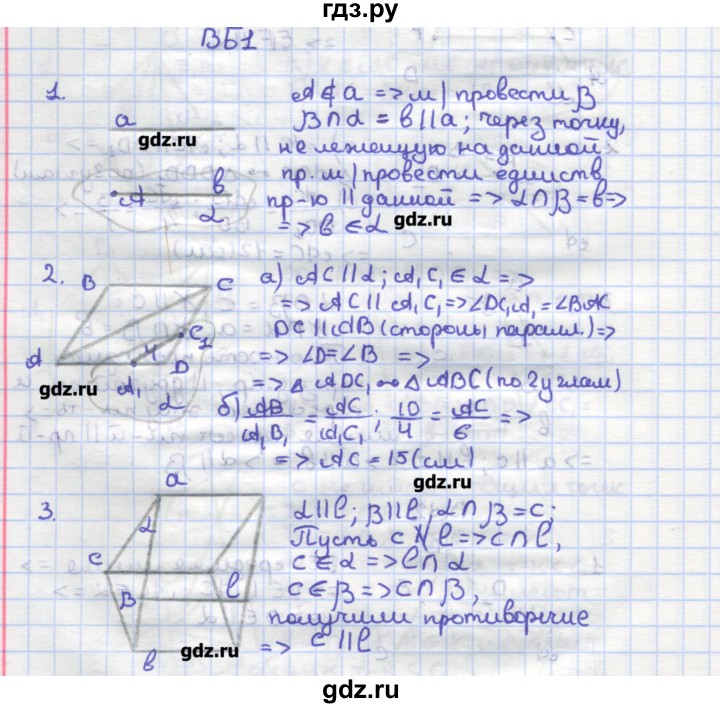 гдз.ру
ВБ1
1.
A ∉ a => м/провести β
β ∩ α = b ∥ a; через точку,
не лежащую на данной
пр. м/провести единств.
пр-ю ∥ данной => α ∩ β = b =>
=> b ∈ α
a
gdz.ru
A
b
α
gdz.ru
2.
B
C
C₁
4
A
A₁
D
α
gdz.ru
а) AC ∥ α; A₁C₁ ∈ α =>
=> AC ∥ A₁C₁ => ∠DC₁A₁ = ∠BAC
DC ∥ AB (стороны паралл.) =>
=> ∠D = ∠B =>
=> △ A₁DC₁ ∾ △ ABC (по 2 углам)
б) AB/A₁B₁ = AC/A₁C₁; 10/4 = AC/6 =>
=> AC = 15 (см)
gdz.ru
3.
a
α
c
l
B
b
gdz.ru
α ∥ l; β ∥ l, α ∩ β = c;
Пусть c ∦ l => c ∩ l,
c ∈ α => l ∩ α
c ∈ β => c ∩ β,
получили противоречие
=> c ∥ l
gdz.ru